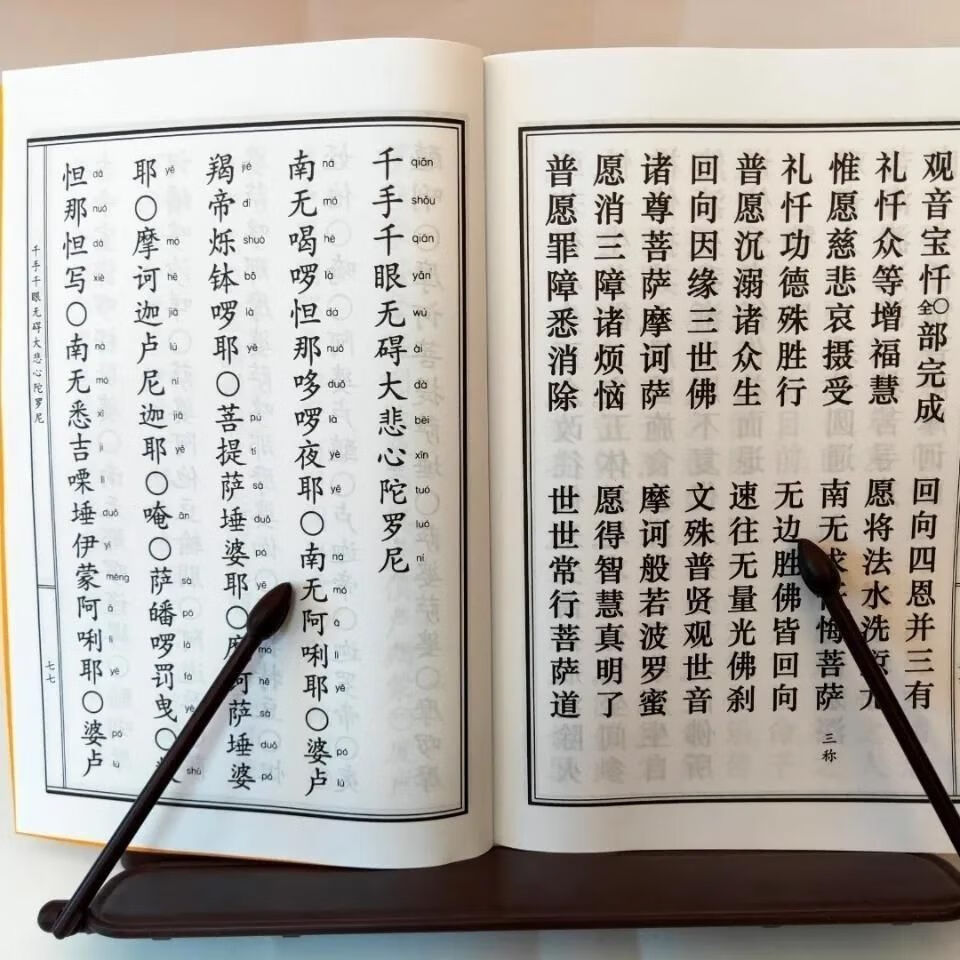 观音宝忏〇全部完成 回向四恩并三有
礼忏众等增福慧 愿将法水洗尤
惟愿慈悲哀摄受 南无求悔菩萨 三称
礼忏功德殊胜行 无边胜佛皆回向
普愿沉溺诸众生 速往无量光佛刹
回向因缘三世佛 文殊普贤观世音
诸尊菩萨摩诃萨 摩诃般若波罗蜜
愿消三障诸烦恼 愿得智慧真明了
普愿罪障悉消除 世世常行菩萨道
qiān shǒu qiān yǎn wú ài dà bēi xīn tuó luó ní
千手千眼无碍大悲心陀罗尼
ná mó hē là dá nuó duō là yè yē ná mó ā lì yē pó lú
南无喝啰怛那哆啰夜耶〇南无阿唎耶〇婆卢
jié dì shuò bō là yē pú tí sà duǒ pó yē mó hē sà duǒ pó
羯帝烁钵啰耶〇菩提萨埵婆耶〇摩诃萨埵婆
yē mó hē jiā lú ní jiā yē ān sà pó là fá yè shù
耶〇摩诃迦卢尼迦耶〇唵〇萨皤啰罚曳〇
dá nuó dá xiě ná mó xī jí lì duǒ yī mēng ā lì yē pó lú
怛那怛写〇南无悉吉㗚埵伊蒙阿唎耶〇婆卢
千手千眼无碍大悲心陀罗尼
七七